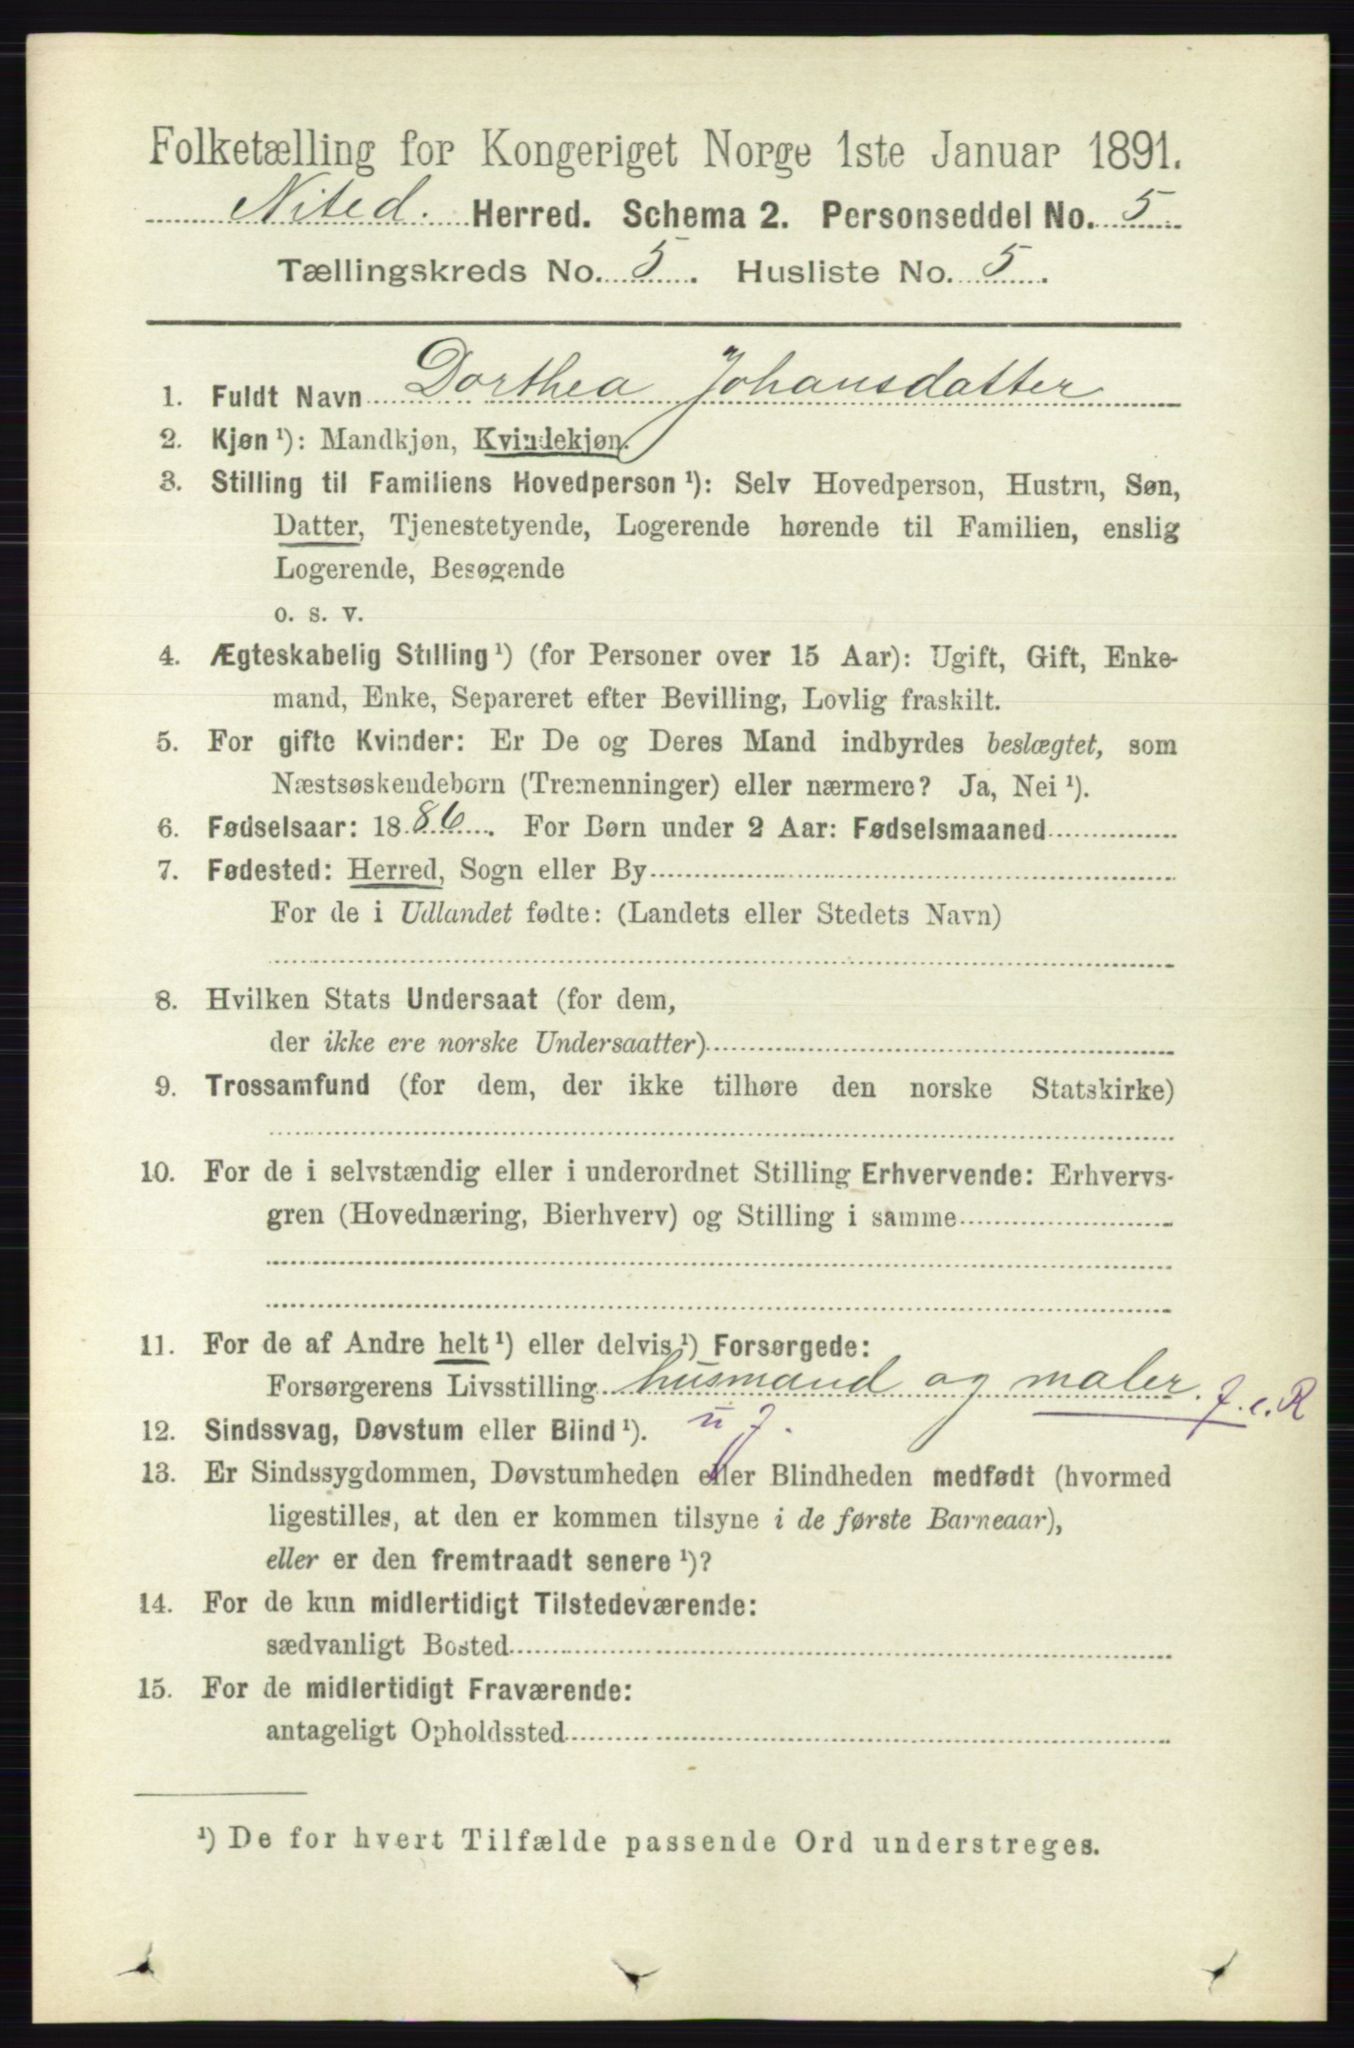 Folketælling for Kongeriget Norge 1ste Januar 1891.
Nited. Herred. Schema 2. Personseddel No. 5
Tællingskreds No. 5. Husliste No. 5.
1. Fuldt Navn Dorthea Johansdatter
2. Kjøn ¹): Mandkjøn, Kvindekjøn.
3. Stilling til Familiens Hovedperson ¹): Selv Hovedperson, Hustru, Søn,
Datter, Tjenestetyende, Logerende hørende til Familien, enslig
Logerende, Besøgende
o. s. v.
4. Ægteskabelig Stilling ¹) (for Personer over 15 Aar): Ugift, Gift, Enke-
mand, Enke, Separeret efter Bevilling, Lovlig fraskilt.
5. For gifte Kvinder: Er De og Deres Mand indbyrdes beslægtet, som
Næstsøskendebørn (Tremenninger) eller nærmere? Ja, Nei ¹).
6. Fødselsaar: 1886. For Børn under 2 Aar: Fødselsmaaned
7. Fødested: Herred, Sogn eller By
For de i Udlandet fødte: (Landets eller Stedets Navn)
8. Hvilken Stats Undersaat (for dem,
der ikke ere norske Undersaatter)
9. Trossamfund (for dem, der ikke tilhøre den norske Statskirke)
10. For de i selvstændig eller i underordnet Stilling Erhvervende: Erhvervs-
gren (Hovednæring, Bierhverv) og Stilling i samme
11. For de af Andre helt ¹) eller delvis ¹) Forsørgede:
Forsørgerens Livsstilling husmand og maler.
12. Sindssvag, Døvstum eller Blind ¹).
13. Er Sindssygdommen, Døvstumheden eller Blindheden medfødt (hvormed
ligestilles, at den er kommen tilsyne i de første Barneaar),
eller er den fremtraadt senere ¹)?
14. For de kun midlertidigt Tilstedeværende:
sædvanligt Bosted
15. For de midlertidigt Fraværende:
antageligt Opholdssted
¹) De for hvert Tilfælde passende Ord understreges.